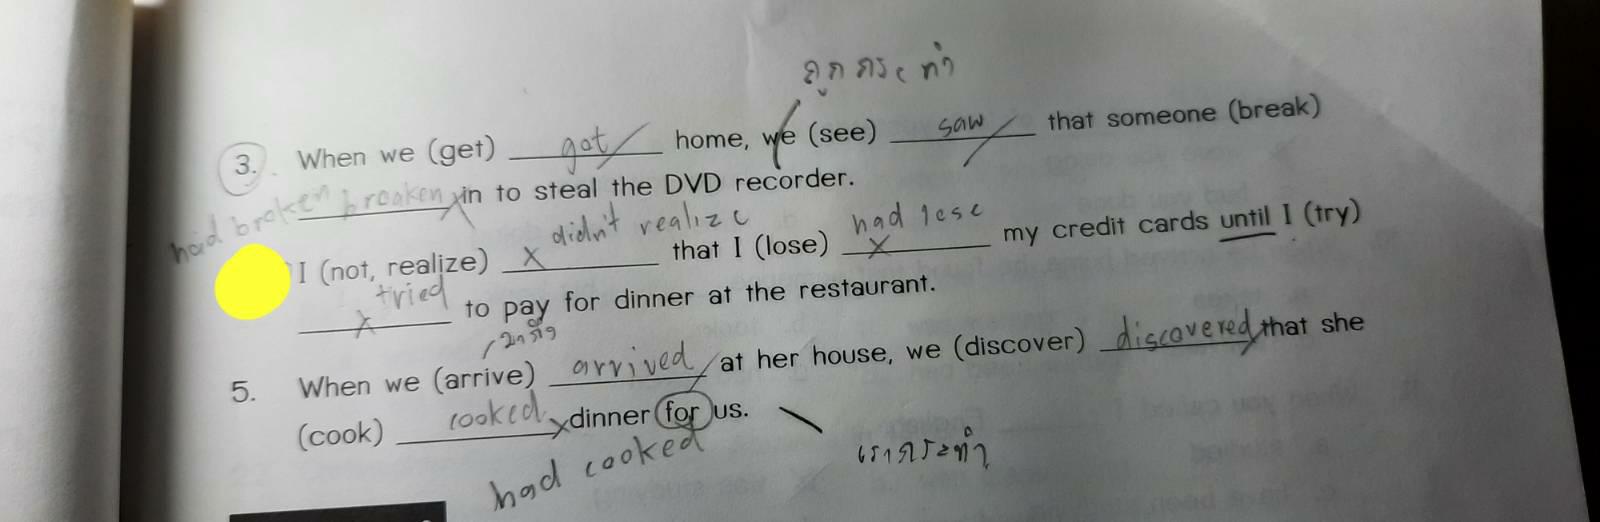 ถูกกระทำ
3. When we (get) got home, we (see) saw that someone (break)
had broken broaken in to steal the DVD recorder.
didn't realize had lose
I (not, realize) x that I (lose) x my credit cards until I (try)
tried
x to pay for dinner at the restaurant.
5. When we (arrive) arrived at her house, we (discover) discovered that she
(cook) cooked x dinner for us.
had cooked
เรากระทำ